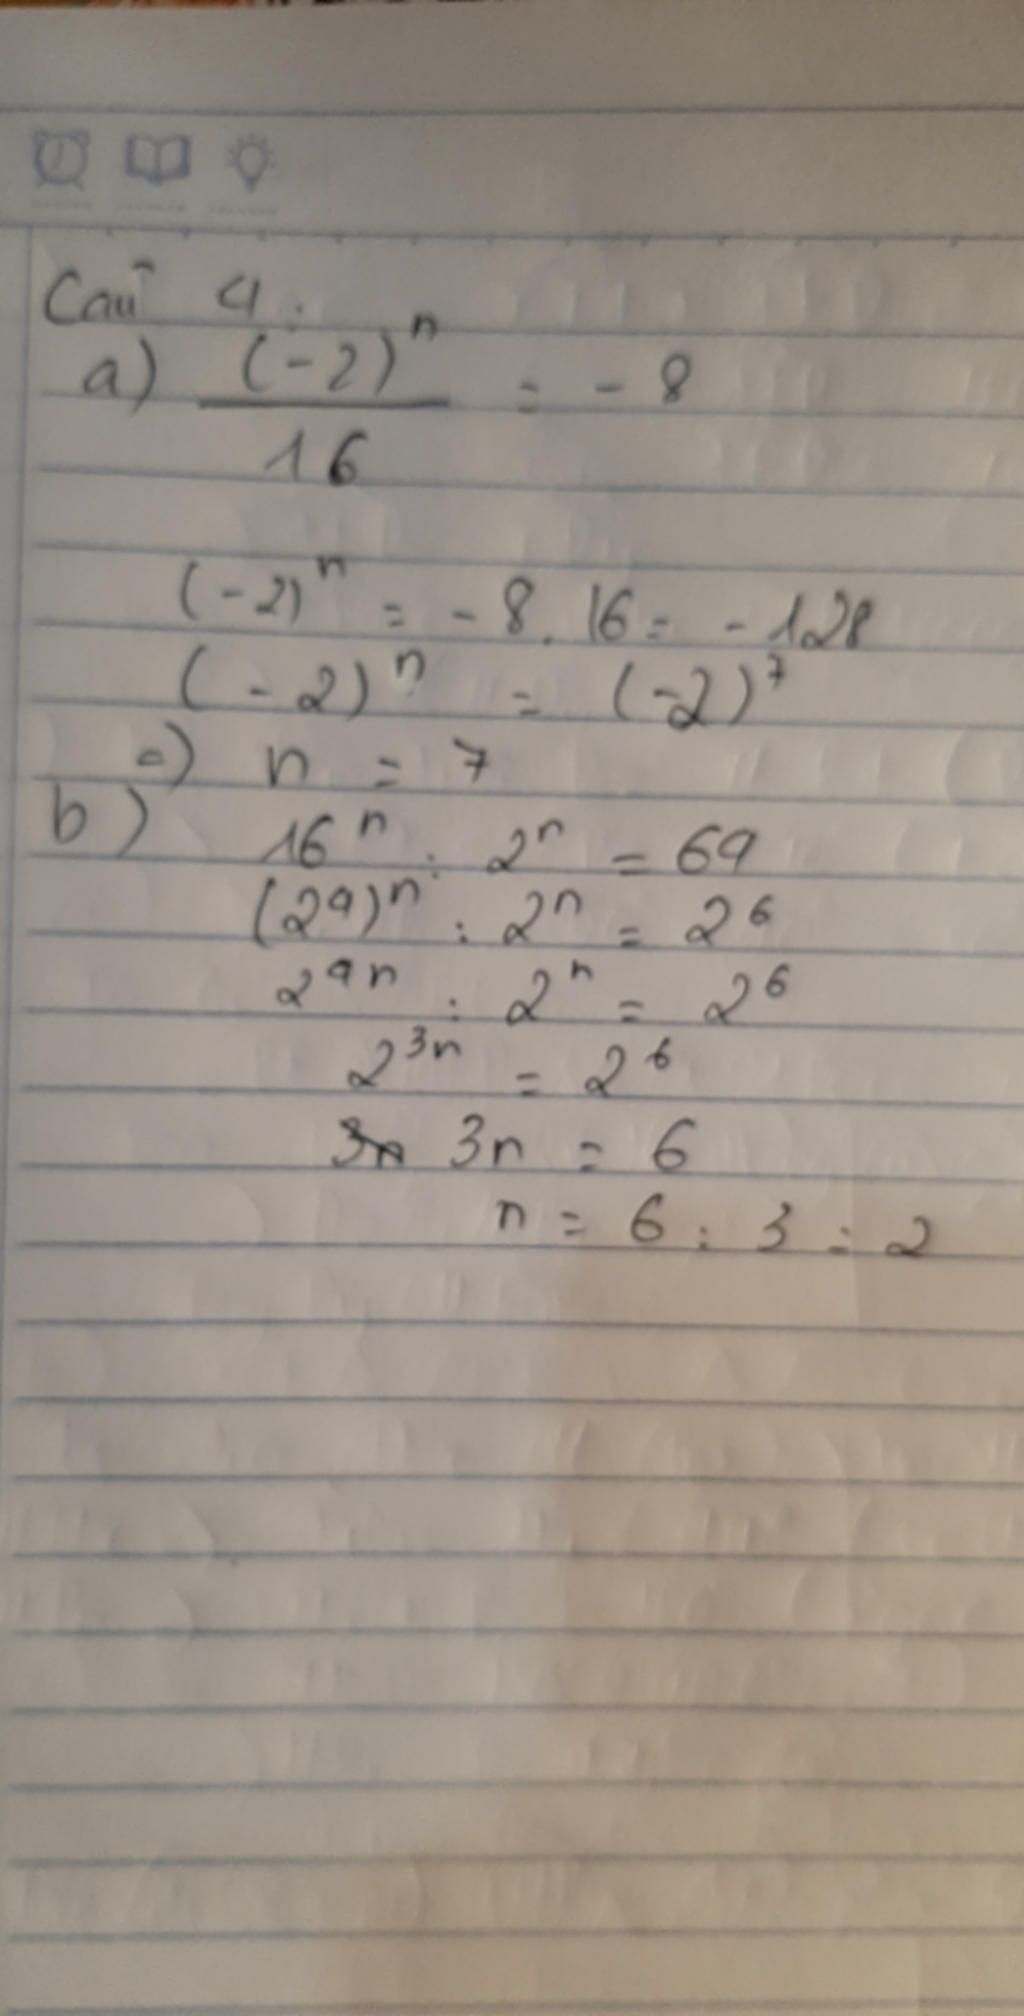 Câu 4:
a) (-2)^n / 16 = - 8
(-2)^n = - 8 . 16 = - 128
(-2)^n = (-2)^7
=) n = 7
b) 16^n : 2^n = 64
(2^4)^n : 2^n = 2^6
2^4n : 2^n = 2^6
2^3n = 2^6
3n 3n = 6
n = 6 : 3 = 2